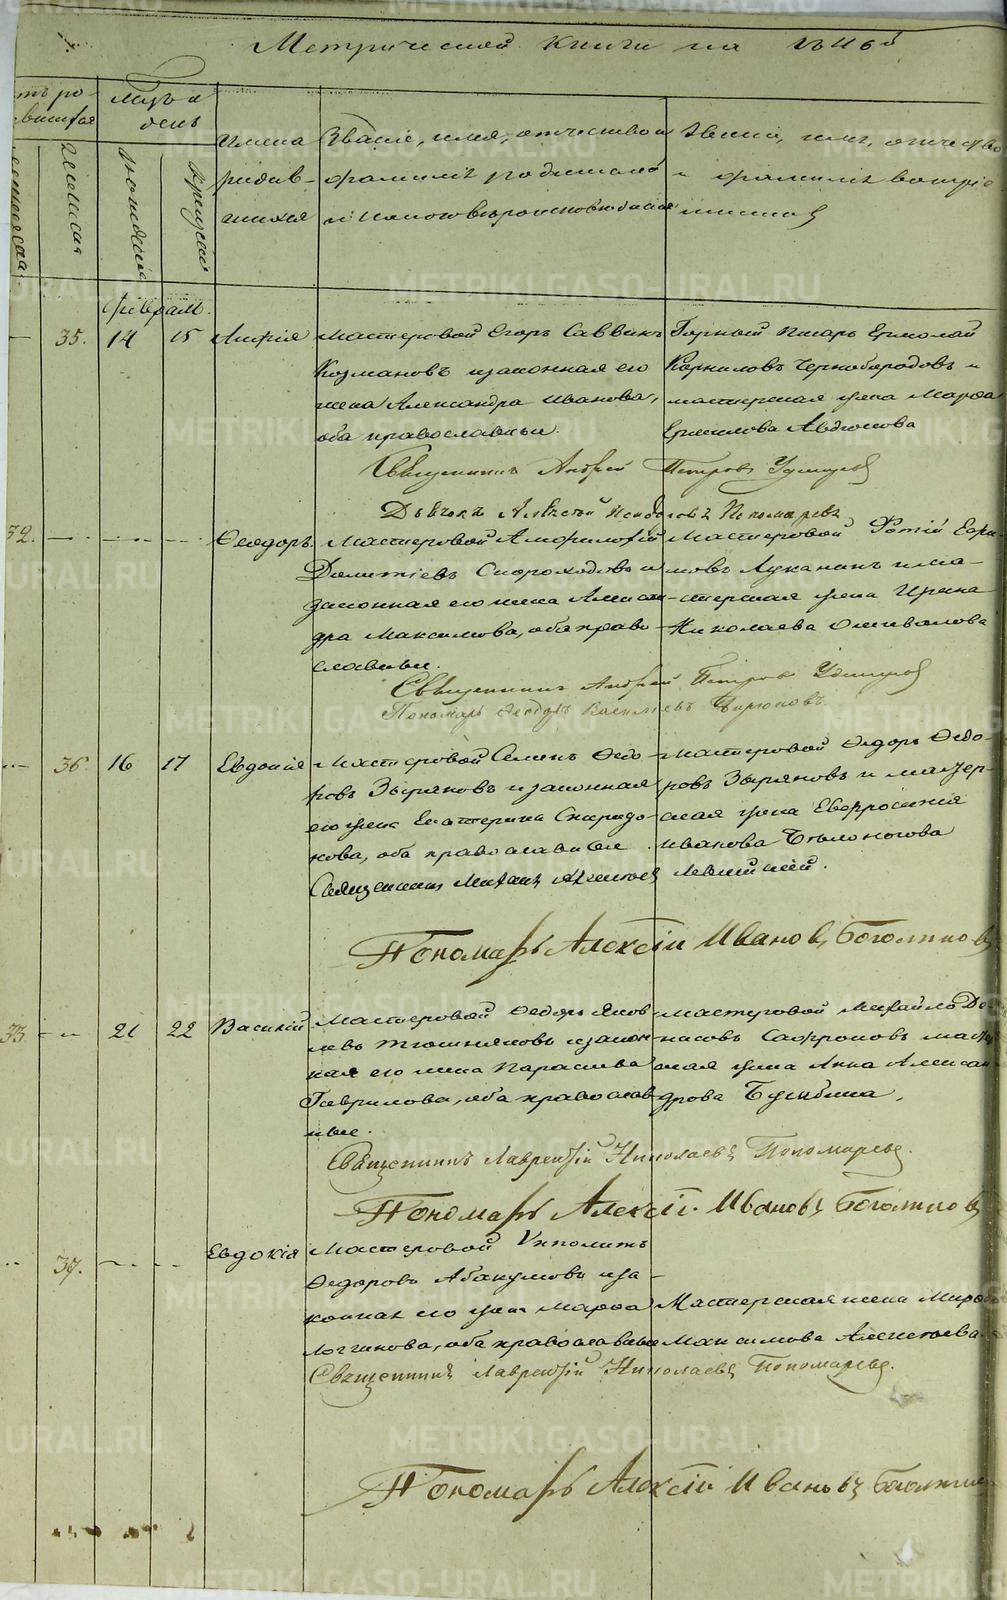 Метрической книги на 1846й
Мѣсяцъ и
день
Имена
родив-
шихся
Званіе, имя, отчество и
фамилія родителей
и какого вѣроисповѣданія
Званіе, имя, отчество
и фамилія воспріе
мниковъ
женска
рожденія
крещенія
Февраль.
35. 14 15
Мастеровой Егоръ Саввинъ
Козмановъ и законная его
жена Александра Иванова,
оба православные.
Горный писарь Ермолай
Корниловъ Чернобородовъ и
мастерская жена Марѳа
Ермилова Авдюкова
Священникъ Андрей Петровъ Удинцевъ
Дьячекъ Алексѣй Пономаревъ
32. Ѳеодоръ.
Мастеровой Амфилохій
Дометіевъ Скороходовъ и
законная его жена Алексан-
дра Максимова, оба право-
славные.
Мастеровой Фотій Ефи-
мовъ Луканинъ и ма-
стерская жена Ирина
Николаева
Священникъ Андрей Петровъ Удинцевъ
Пономарь Ѳеодоръ Васильевъ Бирюковъ.
36. 16 17 Евдокія
Мастеровой Семенъ Ѳедо-
ровъ Зыряновъ и законная
его жена Екатерина Спиридо-
нова, оба православные.
Мастеровой Ѳедоръ Ѳедо-
ровъ Зыряновъ и мастер-
ская жена Евфросинія
Иванова Бѣлоногова
Священникъ Михаилъ Левитскій.
Пономарь Алексѣй Ивановъ Боголюбовъ
33. 21 22 Василій
Мастеровой Ѳедоръ Яков-
левъ и закон-
ная его жена Парасковья
Гаврилова, оба православ-
ные.
Мастеровой Михайло Де-
нисовъ Сафроновъ мастер
ская жена Анна Алексан-
дрова
Священникъ Лаврентій Николаевъ Пономаревъ.
Пономарь Алексѣй Ивановъ Боголюбовъ
37. Евдокія
Мастеровой Ипполитъ
Ѳедоровъ Абакумовъ и за-
конная его жена Марѳа
Логгинова, оба православные
Мастерская жена
Максимова Алексѣева
Священникъ Лаврентій Николаевъ Пономаревъ.
Пономарь Алексѣй Ивановъ
METRIKI.GASO-URAL.RU